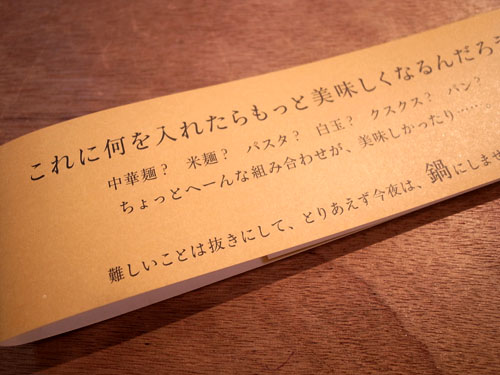 これに何を入れたらもっと美味しくなるんだろう
中華麺? 米麺? パスタ? 白玉? クスクス? パン?
ちょっとへーんな組み合わせが、美味しかったり……。
難しいことは抜きにして、とりあえず今夜は、鍋にしませ